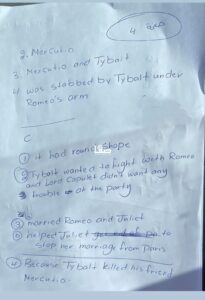 2. Mercutio
3 Mercutio and Tybalt
4 was stabbed by Tybalt under
Romeo's arm
C
① it had round shape
② Tybalt wanted to fight with Romeo
and Lord Capulet didn't want any
trouble at the party
③ married Romeo and Juliet
helped Juliet to
stop her marriage from Paris
④ Because Tybalt killed his friend
Mercutio.